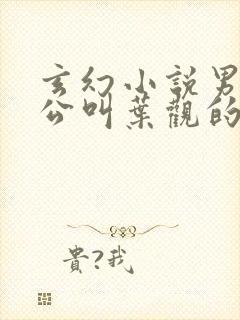 玄幻小說男
公叫葉觀的
貴?我